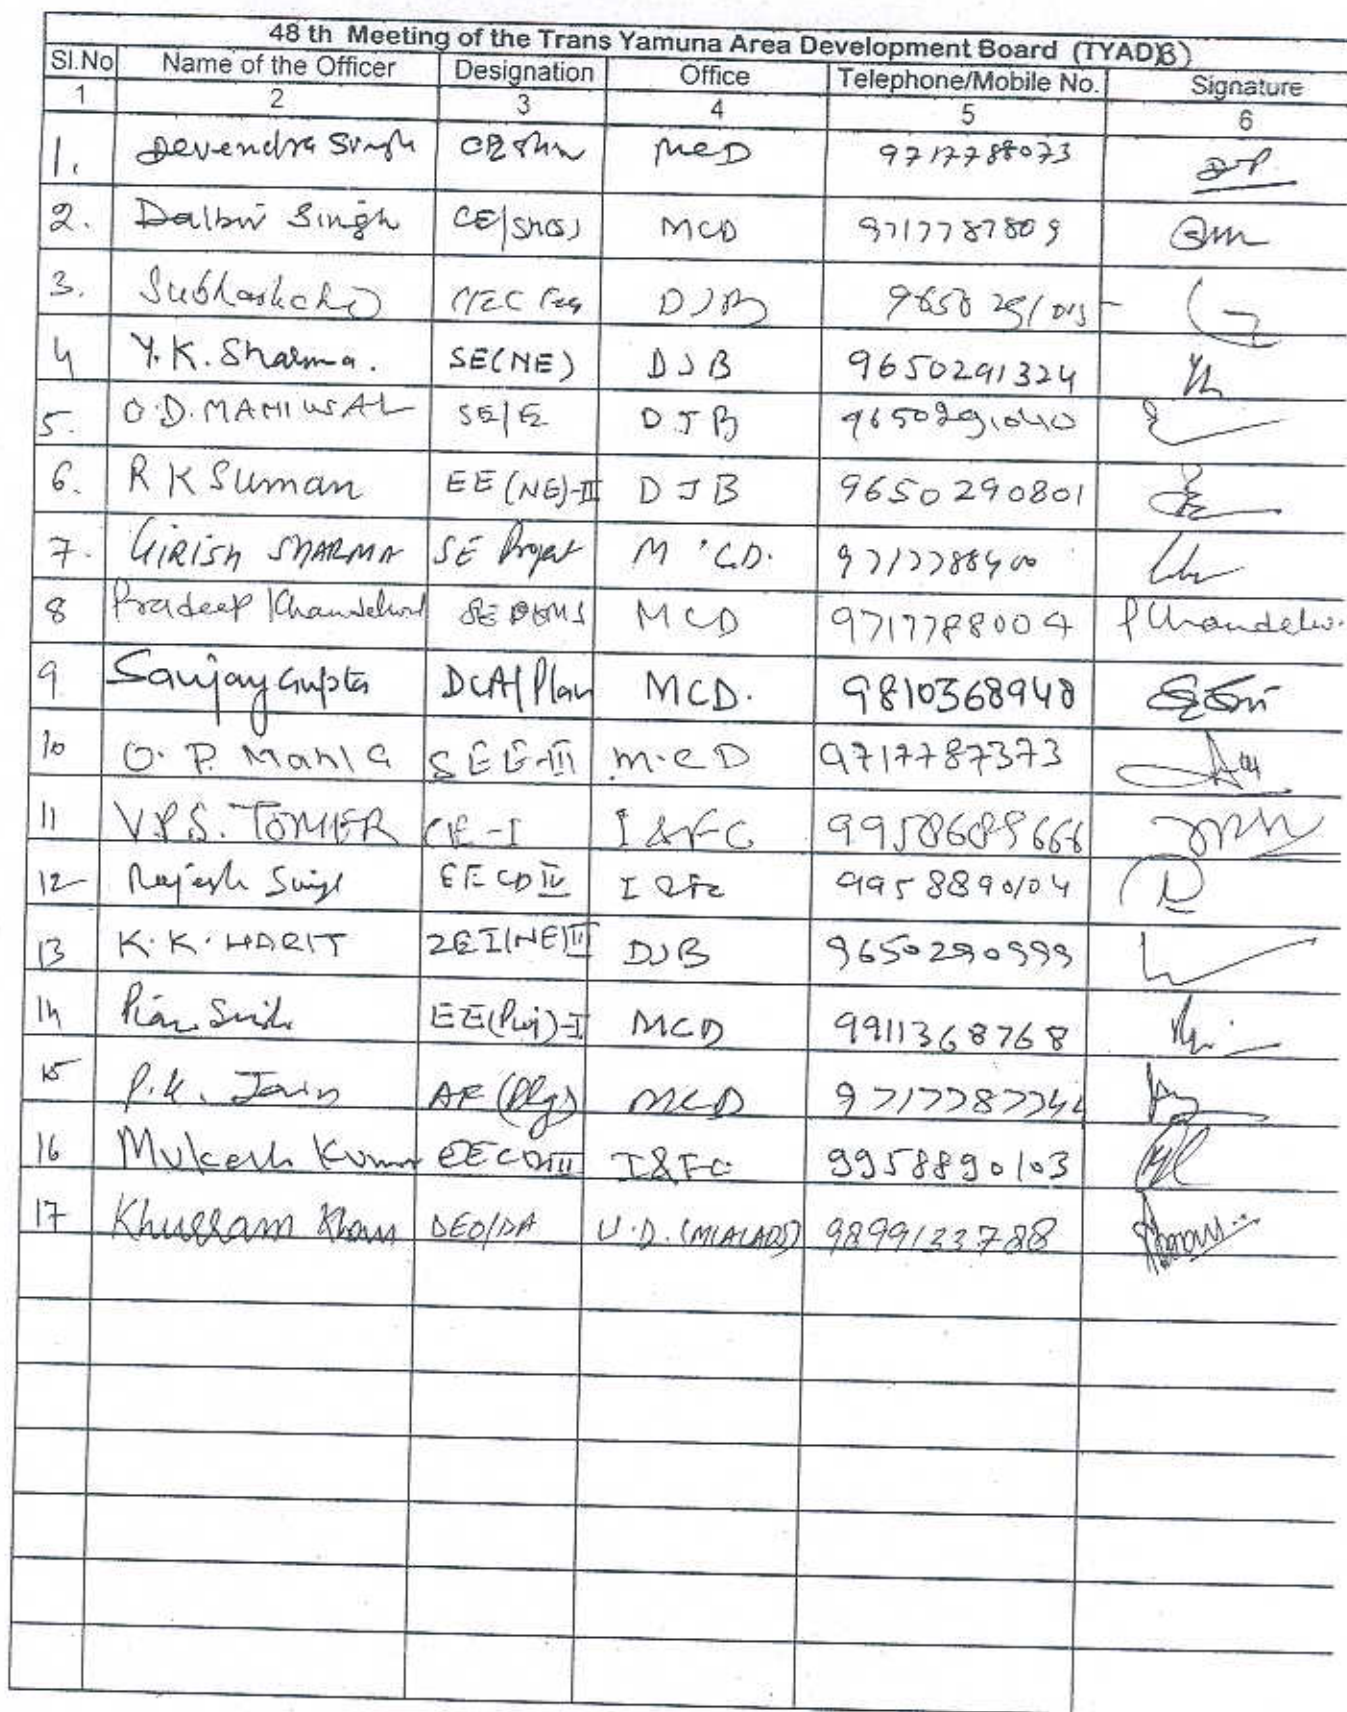 48 th Meeting of the Trans Yamuna Area Development Board (TYADB)
Sl.No Name of the Officer Designation Office Telephone/Mobile No. Signature
1 2 3 4 5 6
1. Devendra Singh MCD 9717788073
2. Dalbir Singh MCD 9717787809
3. DJB
4 Y.K. Sharma. SE(NE) DJB 9650291324
5. O.D. MAHIWAL SE/E DJB 9650291040
6. R K Suman EE (NE)-II DJB 9650290801
7. GIRISH SHARMA SE Project M.C.D. 9717788400
8 Pradeep Khandelwal MCD 9717788004
9 Sanjay Gupta DCA/Plan MCD. 9810368948
10 O. P. M.CD 9717787373
11 V.P.S. TOMER CE-I I &FC
12 Rajesh Singh EE CD IV I &FC 9958890104
13 K.K. HARIT DJB 9650290999
14 EE(Proj)-I MCD 9911368768
15 P.K. Jain MCD
16 Mukesh Kumar EE CD III I&FC 9958890103
17 Khurram Khan DEO/PA U.D. 9899133788